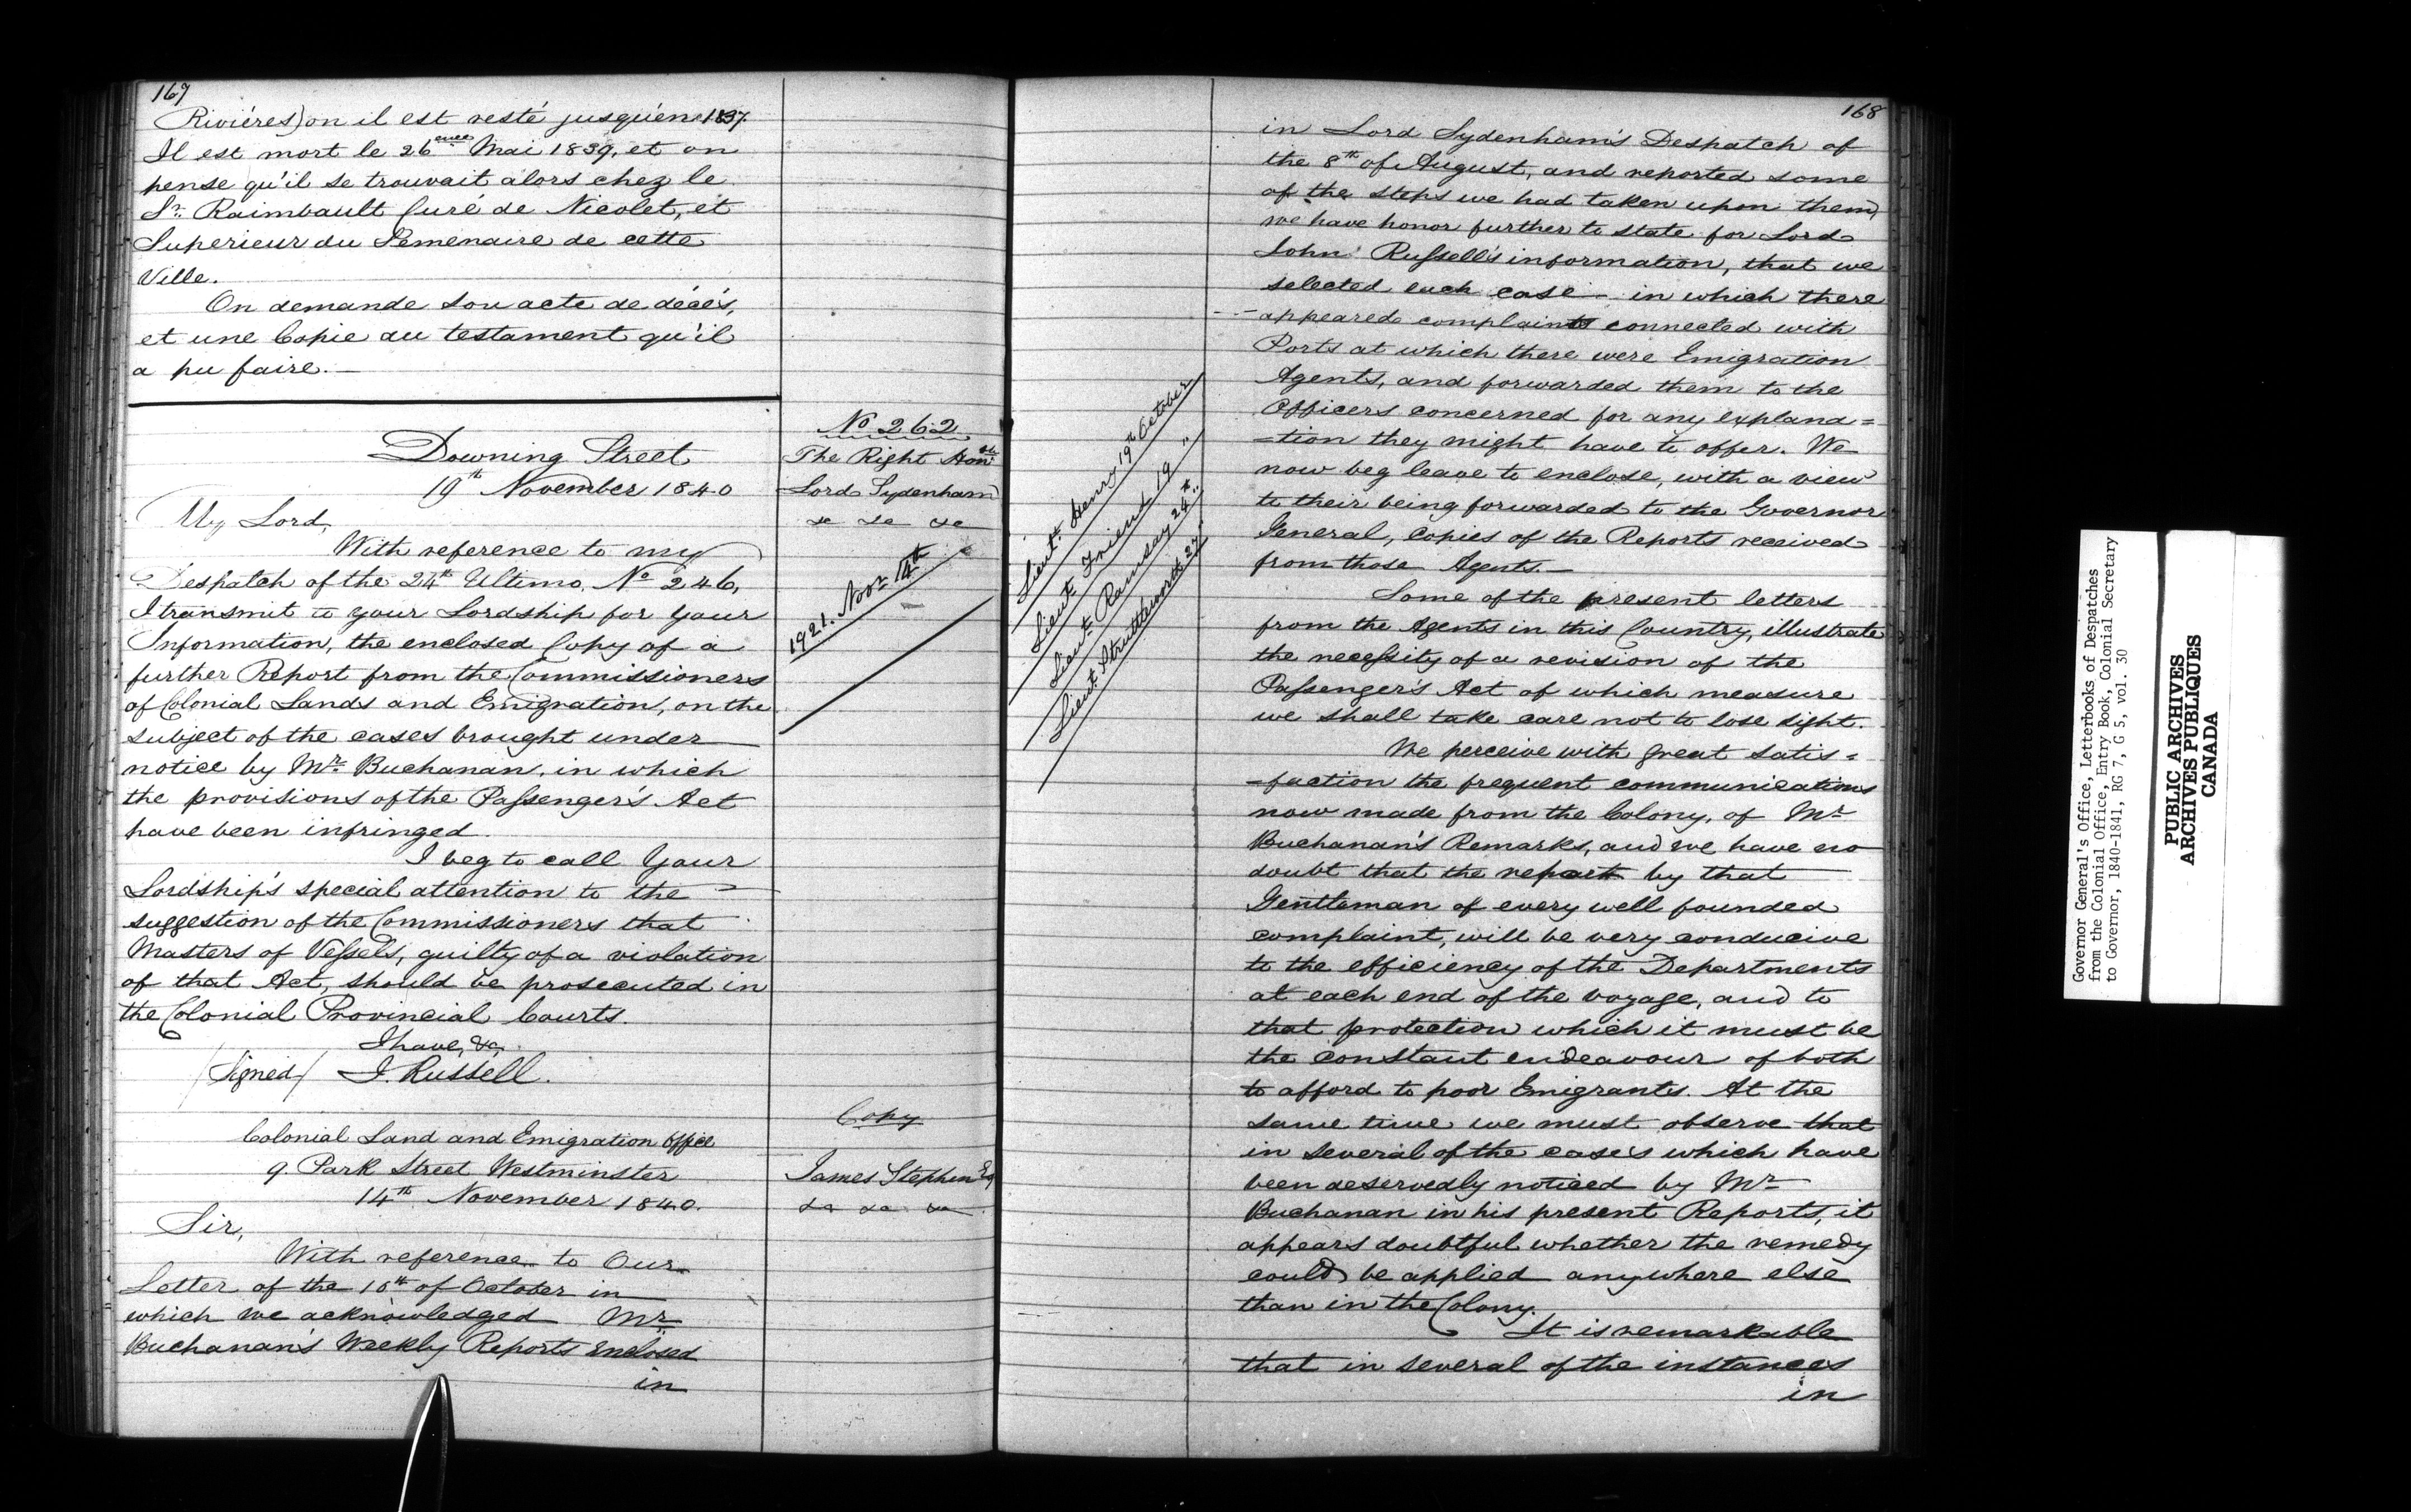 167
Riviéres) on il est resté jusqu'en 1837.
Il est mort le 26eme Mai 1839, et on
pense qu'il se trouvait alors chez le
Sr. Raimbault Curé de Nicolet, et
Superieur du Semenaire de cette
Ville.
On demande son acte de décés,
et une Copie du testament qu'il
a pu faire.—
No 262
The Right Honble
Lord Sydenham
&c &c &c
1921. Novr 14th
Downing Street
19th November 1840
My Lord,
With reference to my
Despatch of the 24th Ultimo, No 246,
I transmit to your Lordship for your
Information, the enclosed Copy of a
further Report from the Commissioners
of Colonial Lands and Emigration, on the
subject of the cases brought under
notice by Mr. Buchanan, in which
the provisions of the Passenger's Act
have been infringed.
I beg to call Your
Lordship's special attention to the
suggestion of the Commissioners that
Masters of Vessels, guilty of a violation
of that Act, should be prosecuted in
the Colonial Provincial Courts.
I have, &c,
(Signed) J. Russell.
Copy
James Stephen Esq
&c &c &c
Colonial Land and Emigration Office
9. Park Street Westminster
14th November 1840.
Sir,
With reference to Our
Letter of the 16th of October in
which we acknowledged Mr.
Buchanan's Weekly Reports enclosed
in
168
in Lord Sydenham's Despatch of
the 8th of August, and reported some
of the steps we had taken upon them,
we have honor further to state for Lord
John Russell's information, that we
selected each case in which there
appeared complaints connected with
Ports at which there were Emigration
Agents, and forwarded them to the
Officers concerned for any explana=
=tion they might have to offer. We
now beg leave to enclose, with a view
to their being forwarded to the Governor
General, Copies of the Reports received
from those Agents.—
Lieut. Henry 19th October
Lieut. Friend 19 "
Lieut. Ramsay 24th "
Lieut. Struttleworth 27.
Some of the present letters
from the Agents in this Country, illustrate
the necessity of a revision of the
Passenger's Act of which measure
we shall take care not to lose sight.
We perceive with great satis=
=faction the frequent communications
now made from the Colony, of Mr
Buchanan's Remarks, and we have no
doubt that the report by that
Gentleman of every well founded
complaint, will be very conducive
to the efficiency of the Departments
at each end of the voyage, and to
that protection which it must be
the constant endeavour of both
to afford to poor Emigrants. At the
same time we must observe that
in several of the cases which have
been deservedly noticed by Mr
Buchanan in his present Reports, it
appears doubtful whether the remedy
could be applied anywhere else
than in the Colony.
It is remarkable
that in several of the instances
in
Governor General's Office, Letterbooks of Despatches
from the Colonial Office, Entry Book, Colonial Secretary
to Governor, 1840-1841, RG 7, G 5, vol. 30
PUBLIC ARCHIVES
ARCHIVES PUBLIQUES
CANADA